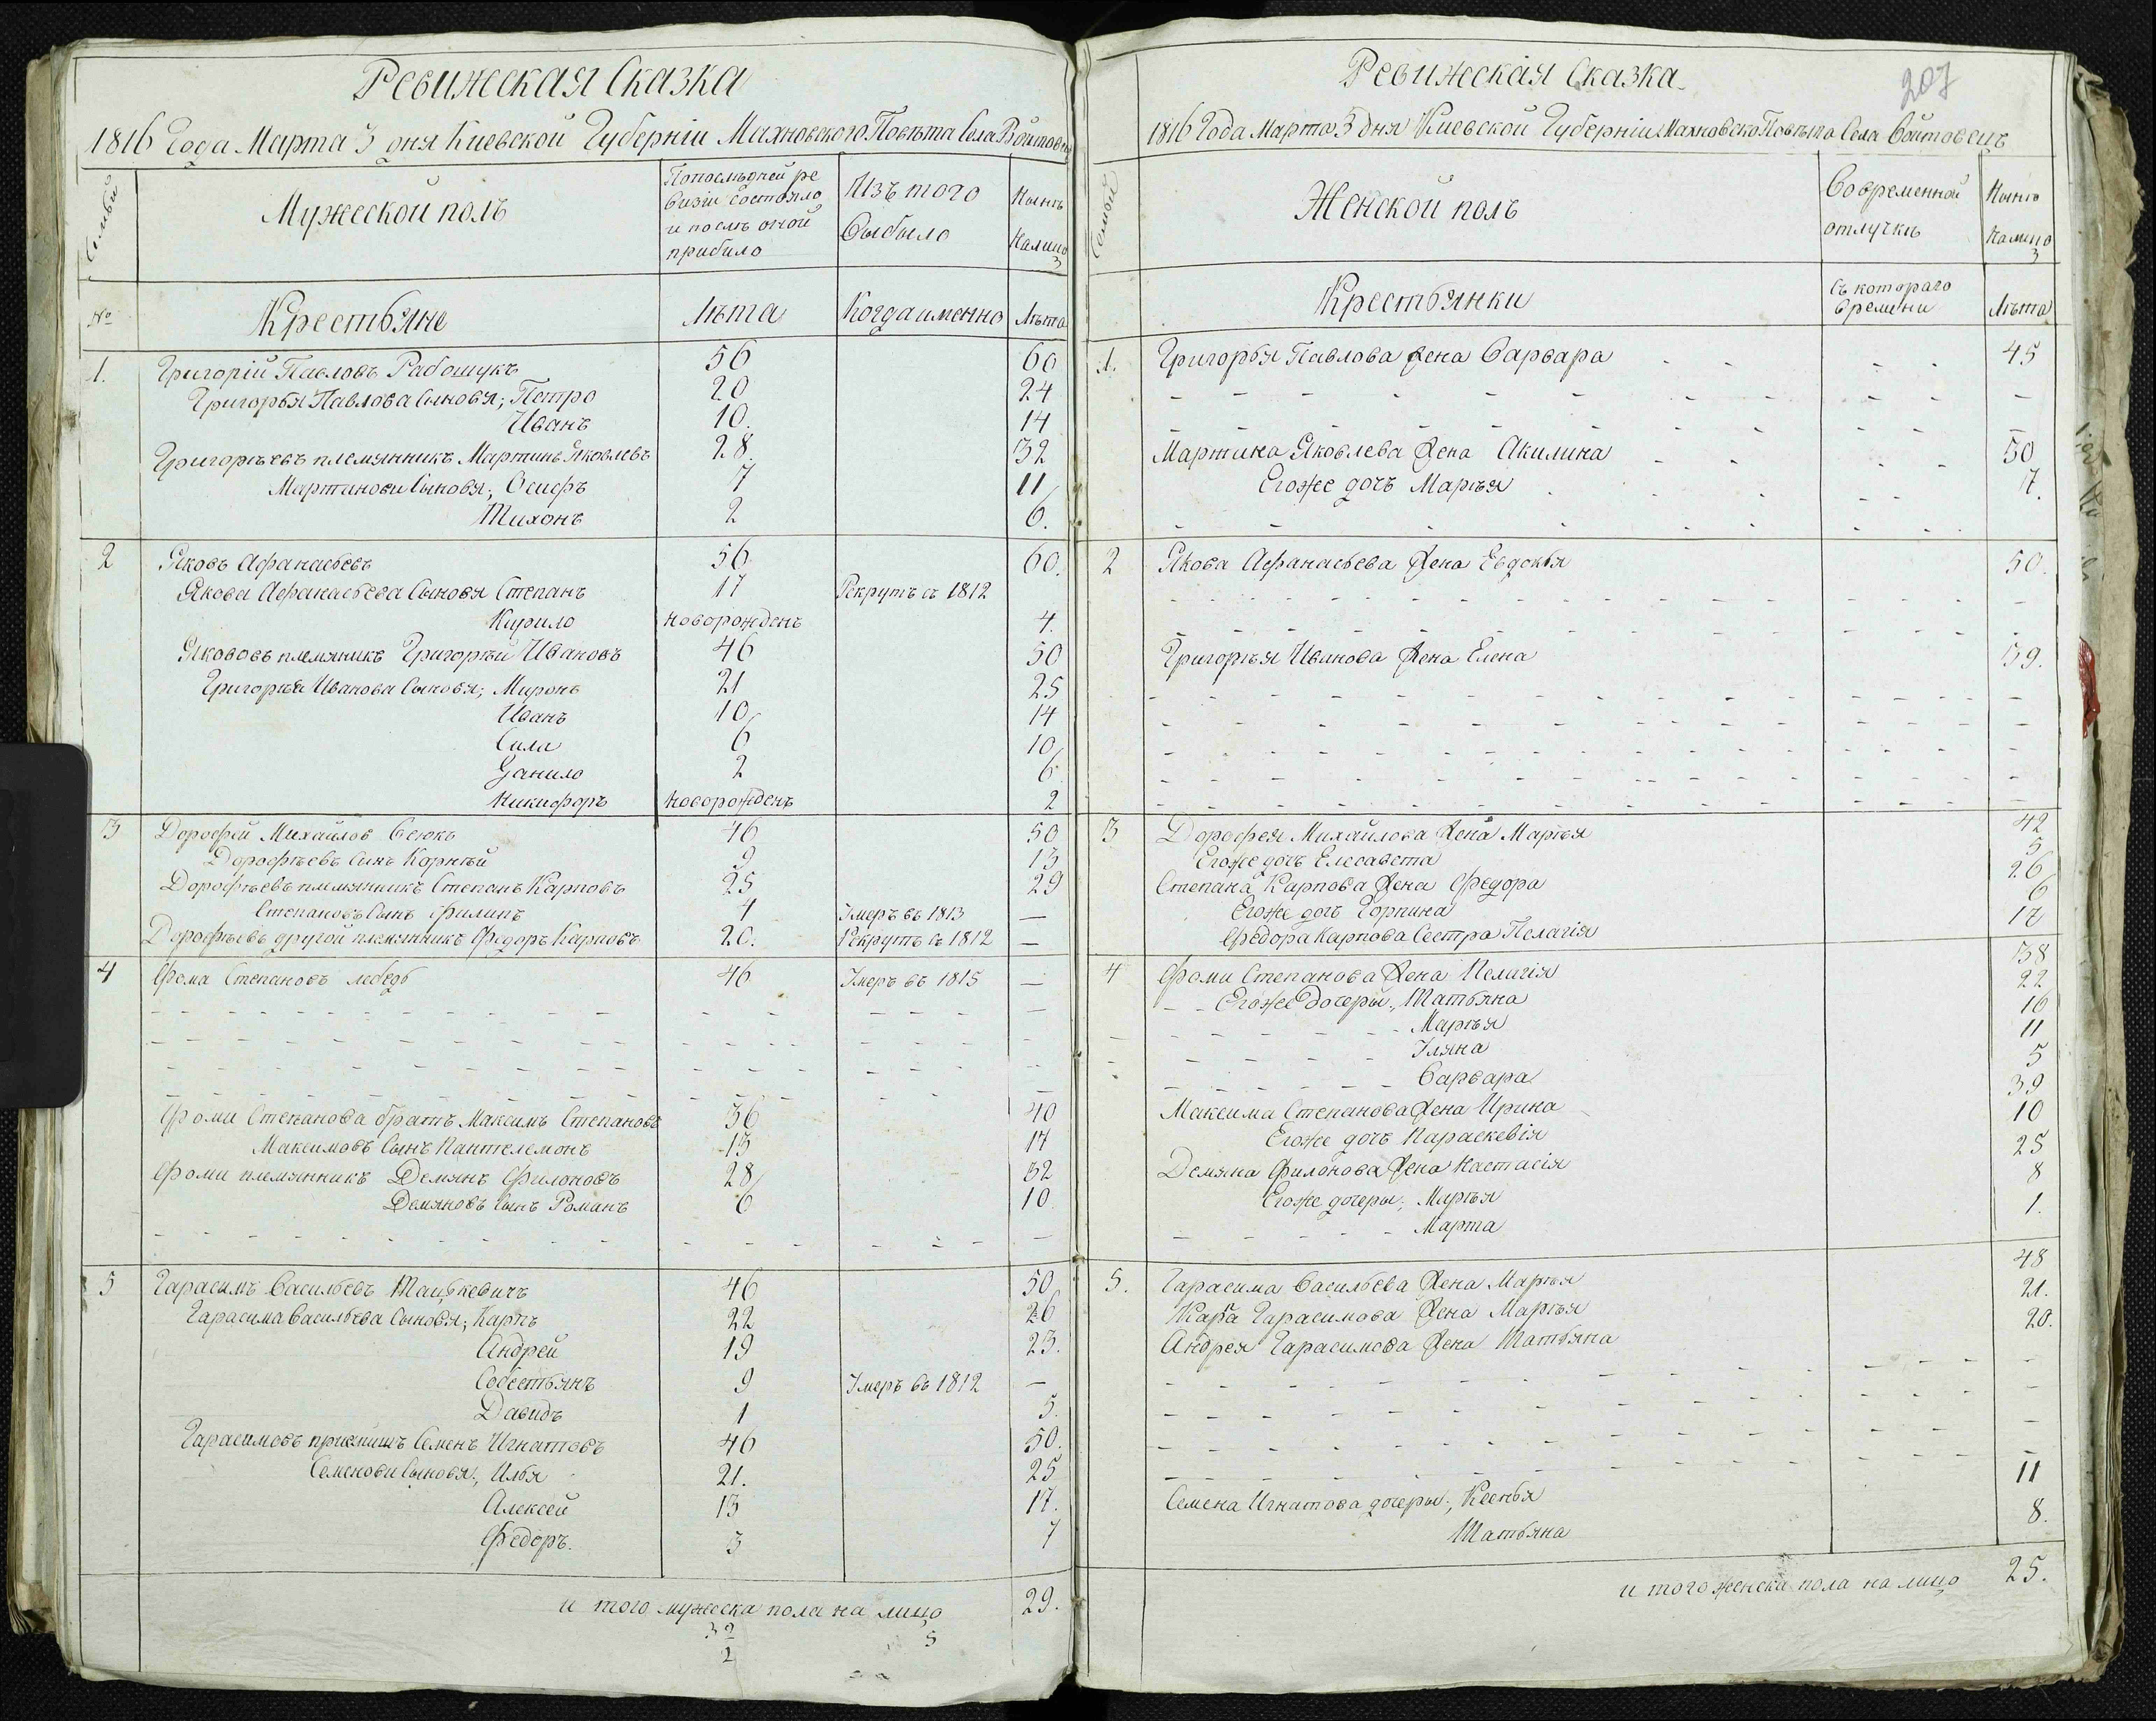 Ревижская Сказка
1816 Года Марта 3 дня Киевской Губерніи Махновского Повѣта Села Войтовец
Семьи
Мужеской полъ
Попослѣдней ре
визіи состояло
и послѣ оной
прибило
Изъ того
Выбыло
Нынѣ
Налицо
3
№
Крестьяне
Лѣта
Когда именно
Лѣта
1. Григорій Павловъ Рабошукъ 56 60
Григорья Павлова Сыновья; Петро 20 24
Иванъ 10. 14
Григорьевъ племянникъ Мартинъ Яковлевъ 28. 32
Мартинови Сыновя; Осифъ 7 11
Тихонъ 2 6.
2 Яковъ Афанасьевъ 56 60.
Якова Афанасьева Сыновя Степанъ 17 Рекрутъ съ 1812
Кирило новорожденъ 4.
Якововъ племяникъ Григорѣй Ивановъ 46 50
Григорѣя Иванова Сыновья; Миронъ 21 25
Иванъ 10 14
Сила 6 10
Данило 2 6
Никифоръ новорожденъ 2
3 Дорофей Михайлов Сеюкъ 46 50
Дорофѣевъ Сынъ Корнѣй 9 13
Дорофѣевъ племянникъ Степанъ Карповъ 25 29
Степановъ Сынъ Филипъ 4 Умеръ въ 1813 —
Дорофѣевъ другой племянникъ Федоръ Карповъ 20. Рекрутъ съ 1812 —
4 Фома Степановъ лебедь 46 Умеръ въ 1815 —
Фоми Степанова братъ Максимъ Степановъ 36 40
Максимовъ Сынъ Пантелемонъ 13 17
Фоми племянникъ Демянъ Филоновъ 28 32
Демяновъ Сынъ Романъ 6 10
5 Гарасимъ Васильевъ Мацькевичъ 46 50
Гарасима Васильева Сыновя; Карпъ 22 26
Андрей 19 23.
Себестьянъ 9 Умеръ въ 1812 —
Давидъ 1 5.
Гарасимовъ приемишъ Семенъ Игнатовъ 46 50.
Семенови Сыновя; Илья 21. 25
Алексей 13 17.
Федоръ. 3 7
и того мужеска пола на лицо 29.
Ревижская Сказка
207
1816 Года Марта 3 дня Киевской Губерніи Махновско Повѣта Села Войтовецъ
Семьи
Женской полъ
Вовременной
отлучкѣ
Нынѣ
Налицо
3
Крестьянки
Съ котораго
времени
Лѣта
1. Григорья Павлова Жена Варвара 45
Мартина Яковлева Жена Акилина 30
Егоже дочъ Марѣя 7.
2 Якова Афанасьева Жена Евдокья 50.
Григорѣя Иванова Жена Елена 39.
3 Дорофея Михайлова Жена Марѣя 42
Егоже дочъ Елесавета 5
Степана Карпова Жена Федора 26
Егоже дочъ Горпина 6
Федора Карпова Сестра Пелагія 17
4 Фоми Степанова Жена Пелагія 38
Егоже Дочеры; Татьяна 22
Марѣя 16
Уляна 11
Варвара 5
Максима Степанова Жена Ирина 39
Егоже дочъ Параскевія 10
Демяна Филонова Жена Настасія 25
Егоже дочеры; Марѣя 8
Марта 1.
5. Гарасима Васильева Жена Марѣя 48
Карпа Гарасимова Жена Марѣя 21.
Андрея Гарасимова Жена Татьяна 20.
Семена Игнатова дочеры; Ксенья 11
Татьяна 8.
и того женска пола на лицо 25.